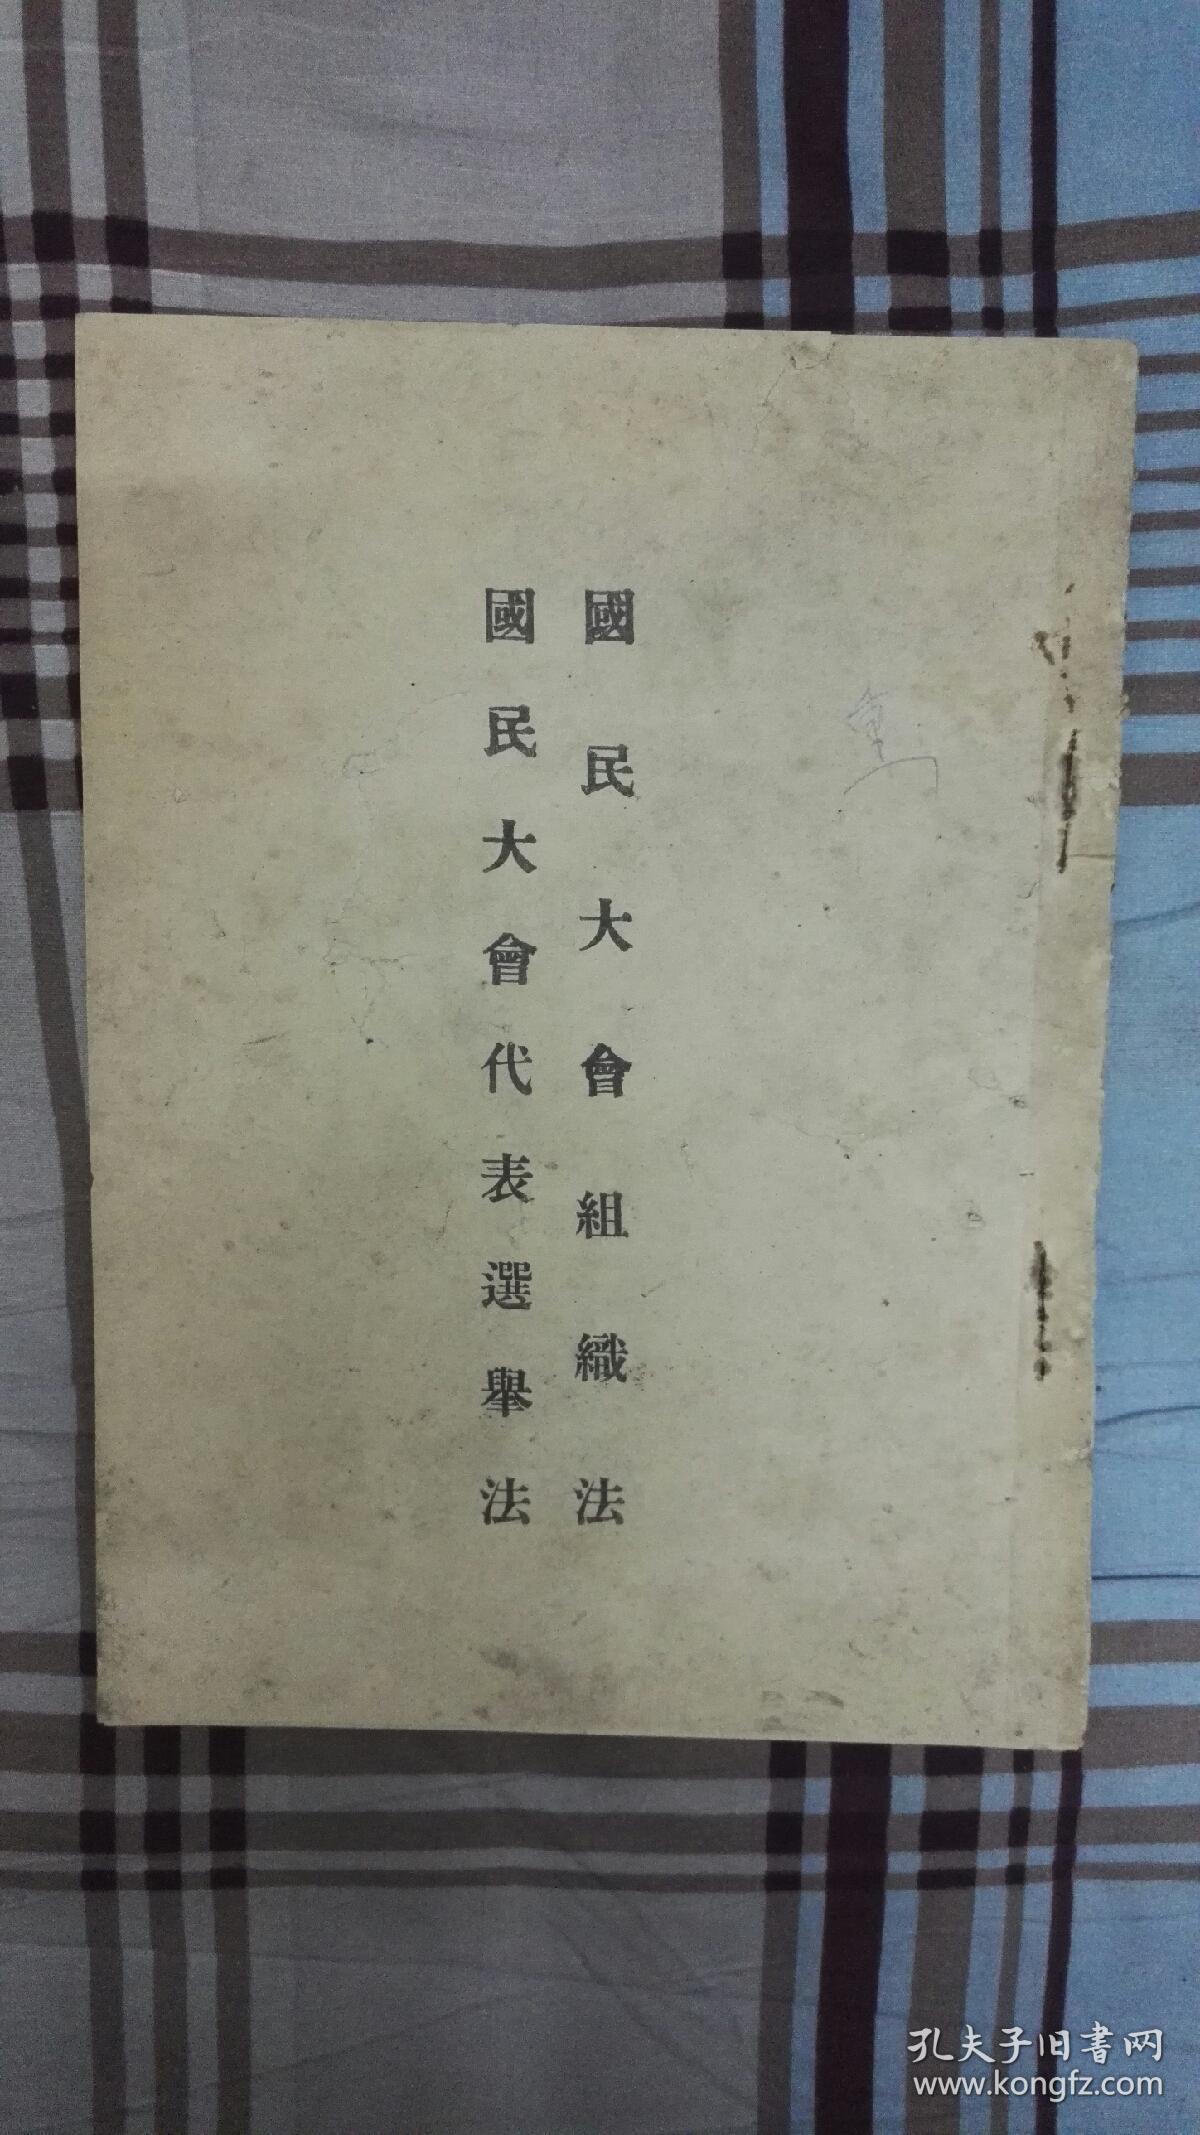 國民大會組織法
國民大會代表選舉法
孔夫子旧書网
www.kongfz.com